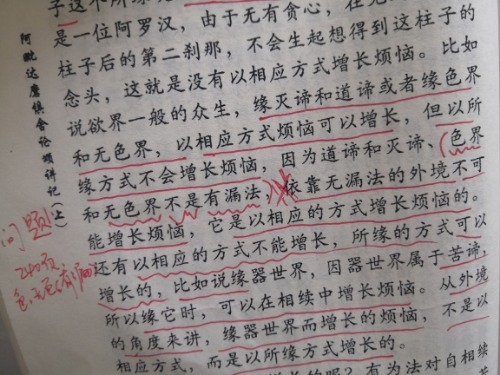 子这个所缘
是一位阿罗汉，由于无有贪心，在无
柱子后的第二刹那，不会生起想得到这柱子的
念头，这就是没有以相应方式增长烦恼。比如
说欲界一般的众生，缘灭谛和道谛或者缘色界
和无色界，以相应方式烦恼可以增长，但以所
缘方式不会增长烦恼，因为道谛和灭谛、色界
和无色界不是有漏法，依靠无漏法的外境不可
能增长烦恼，它是以相应的方式增长烦恼的。
还有以相应的方式不能增长，所缘的方式可以
增长的，比如说缘器世界，因器世界属于苦谛，
所以缘它时，可以在相续中增长烦恼。从外境
的角度来讲，缘器世界而增长的烦恼，不是以
相应方式，而是以所缘方式增长的。
呢？有为法对自相续
阿毗达磨俱舍论颂讲记（上）
问题
240页